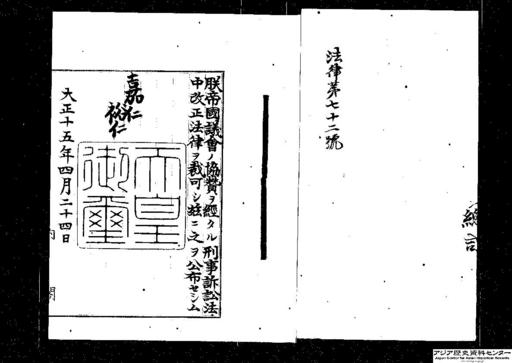 法律第七十二號
朕帝國議會ノ協賛ヲ經タル刑事訴訟法
中改正法律ヲ裁可シ玆ニ之ヲ公布セシム
嘉仁
裕仁
天皇御璽
大正十五年四月二十四日
内閣
アジア歴史資料センター
Japan Center for Asian Historical Records